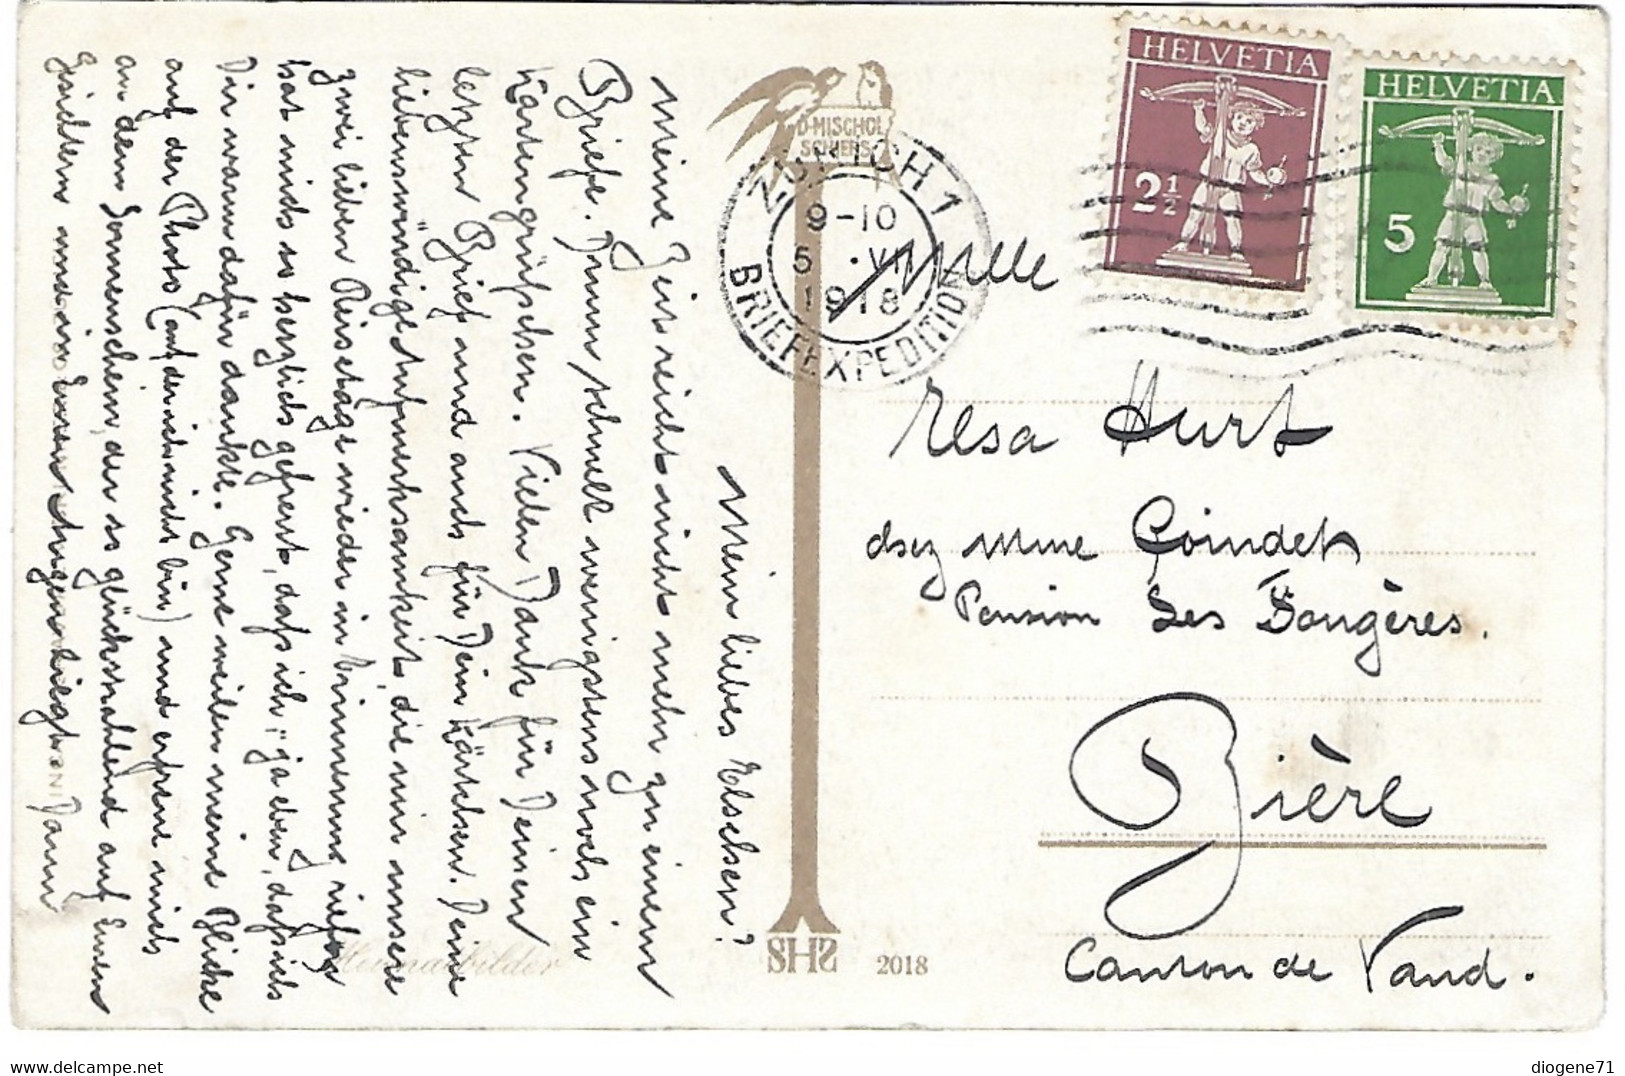 HELVETIA
2½
HELVETIA
5
D. MISCHOL
SCHIERS
ZÜRICH 1
9-10
5 . VII
1918
BRIEFEXPEDITION
Mlle
Elsa Hurt
chez Mme Coindet
Pension Les Fougères.
Bière
Canton de Vaud.
Mein liebes Elschen!
Meine Zeit reicht nicht mehr zu einem
Briefe. Drum schnell wenigstens noch ein
Kartengrüsschen. Vielen Dank für Deinen
letzten Brief und auch für Dein Kärtchen. Deine
liebenswürdige Aufmerksamkeit, die mir unsere
zwei lieben Reisetage wieder in Erinnerung riefen
hat mich so herzlich gefreut, dass ich, ja eben, dass ich
Dir warm dafür dankte. Gerne weilen meine Blicke
auf der Photo (auf der ich nicht bin) und erfreue mich
an dem Sonnenschein, der so glückstrahlend auf Euren
Gesichtern und in Euren Augen liegt.
Heimatbilder
SHS
2018
diogene71